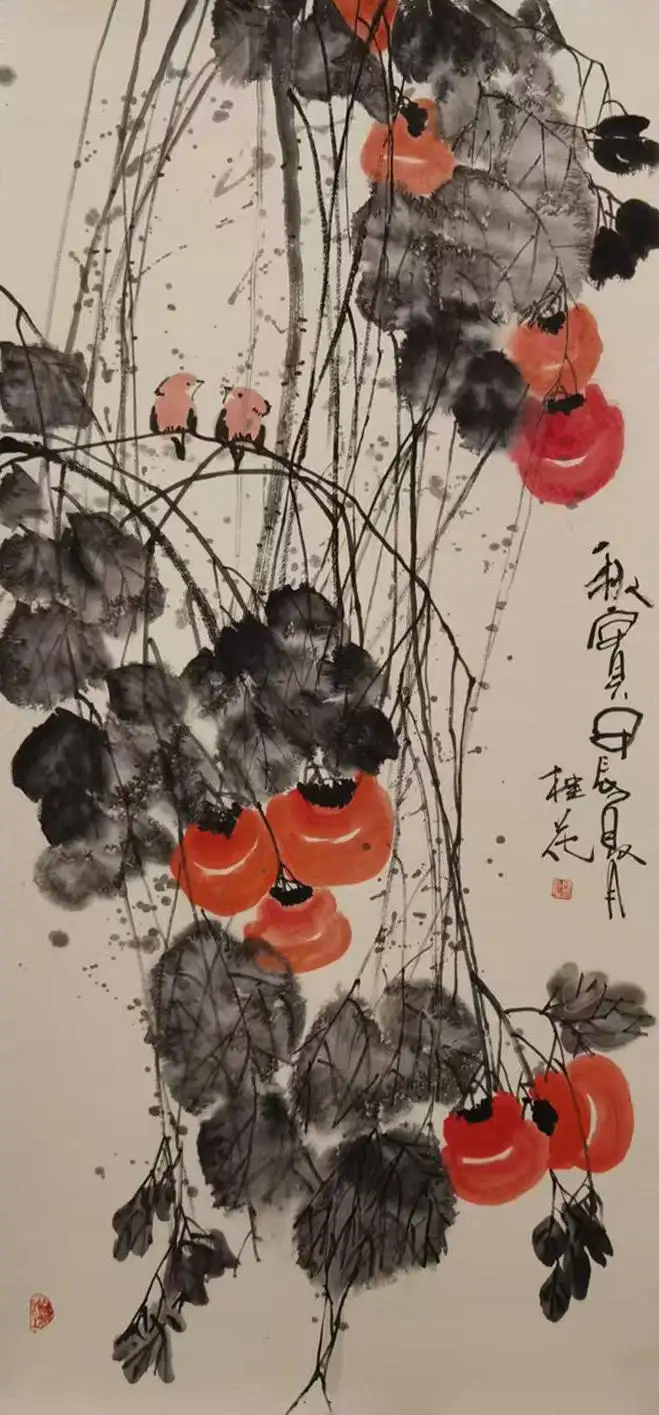 秋實甲辰夏月
桂花